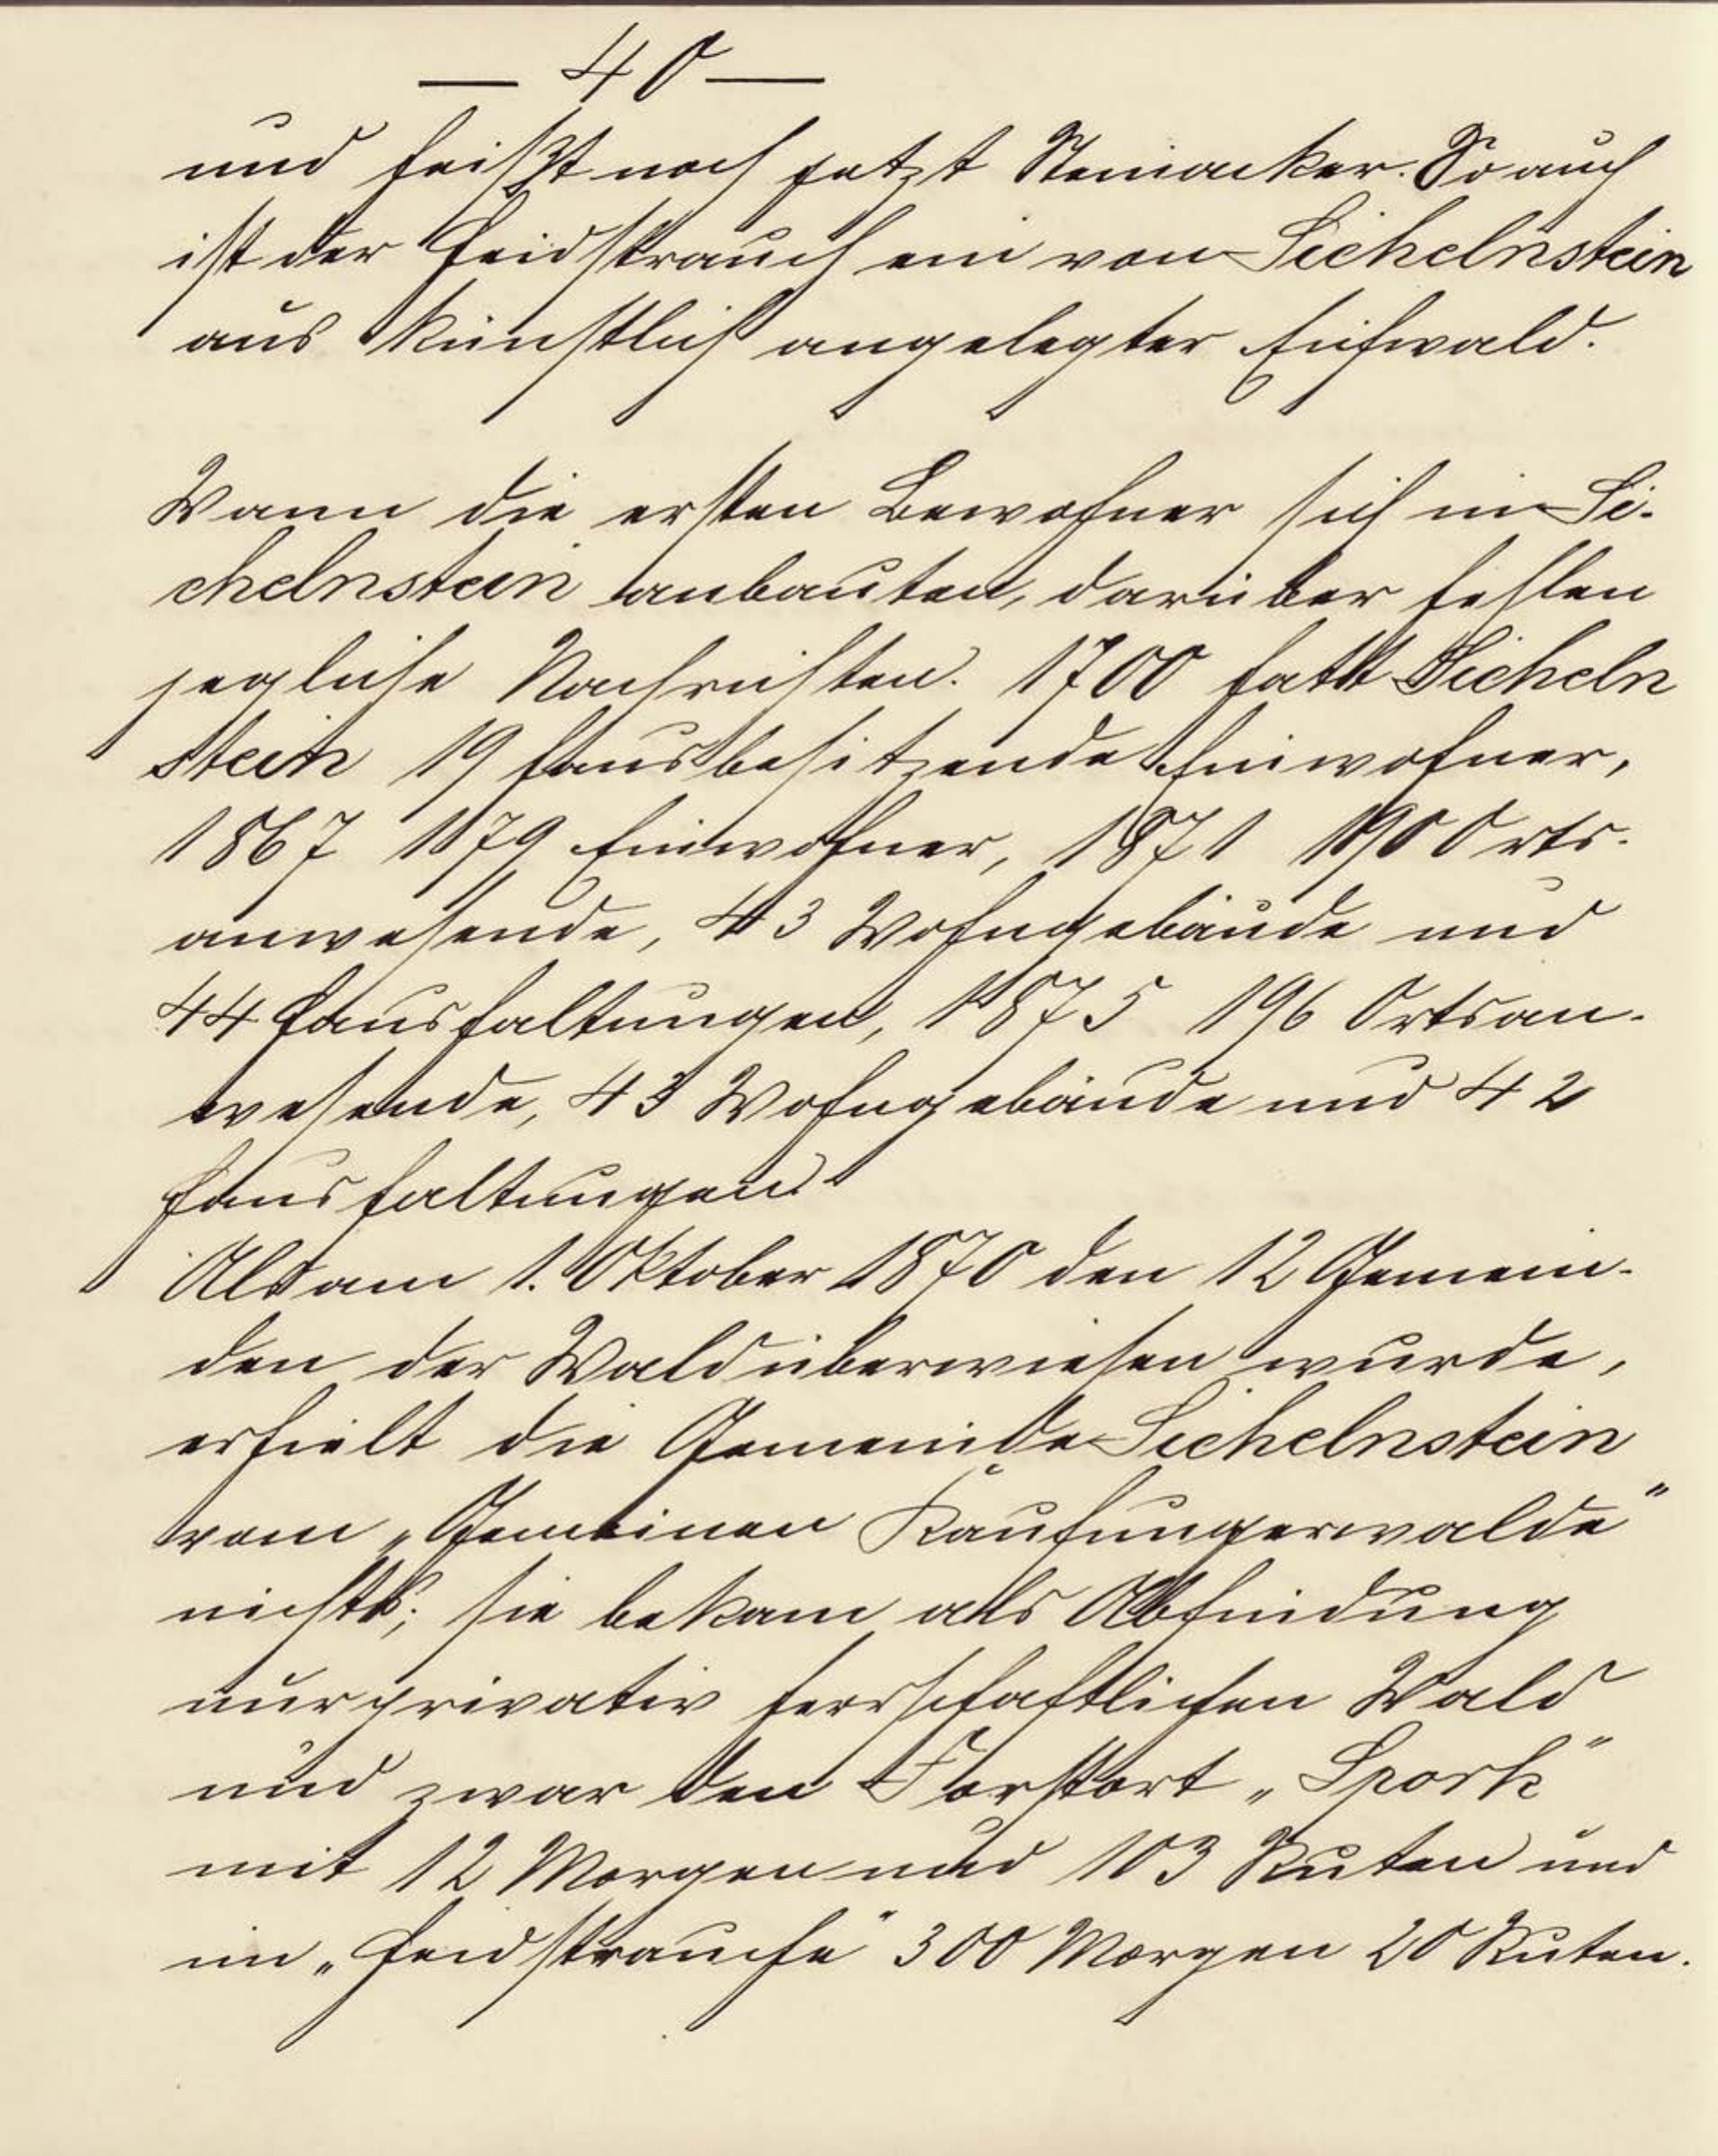 — 40 —
und heißt noch jetzt Steinacker. So auch
ist der Heidstrauch ein von Sichelnstein
aus künstlich angelegter Eichwald.
Wann die ersten Bewohner sich in Si-
chelnstein anbauten, darüber fehlen
jegliche Nachrichten. 1700 hatt Sicheln
stein 19 hausbesitzende Einwohner,
1867 179 Einwohner, 1871 190 Orts-
anwesende, 43 Wohngebäude und
44 Haushaltungen, 1875 196 Ortsan-
wesende, 43 Wohngebäude und 42
Haushaltungen.
Als am 1. Oktober 1870 den 12 Gemein-
den der Wald überwiesen wurde,
erhielt die Gemeinde Sichelnstein
vom „Gemeinen Kaufungerwalde"
nichts; sie bekam als Abfindung
nur privativ herrschaftlichen Wald
und zwar den Forstort „Spork"
mit 12 Morgen und 103 Ruten und
im „Heidstrauche" 300 Morgen 20 Ruten.